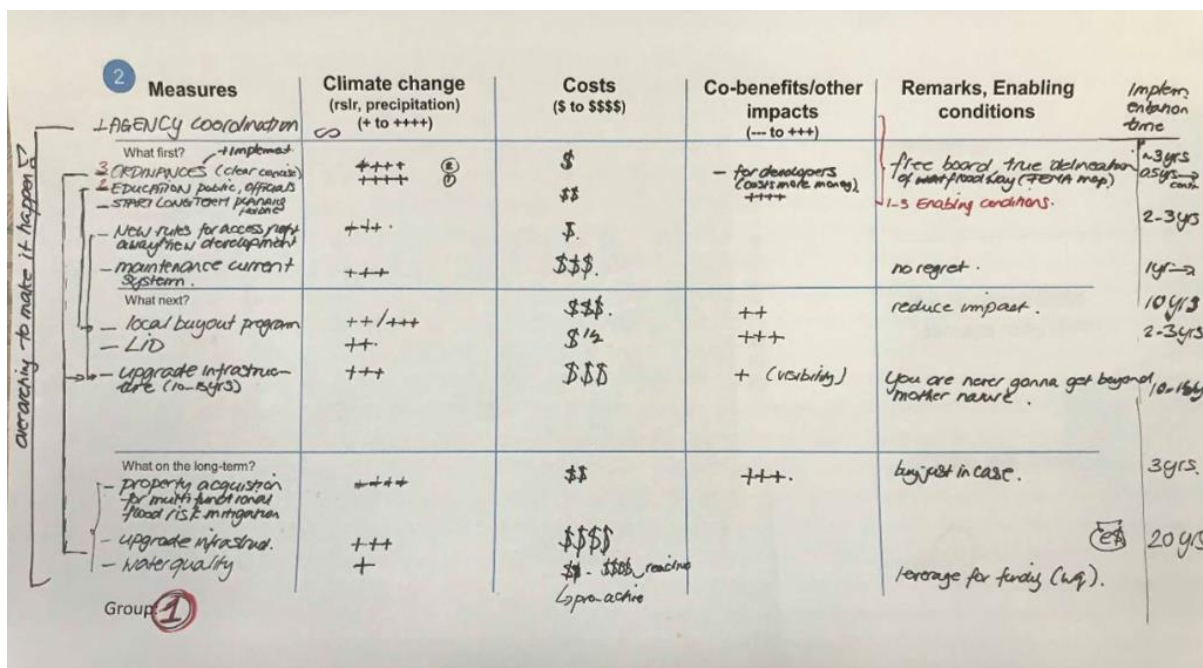 2
Measures
Climate change
(rslr, precipitation)
(+ to ++++)
Costs
($ to $$$$)
Co-benefits/other
impacts
(--- to +++)
Remarks, Enabling
conditions
Implem
entation
time
overarching to make it happen
1 AGENCY coordination
∞
What first?
+ implement
3 ORDINANCES (clear concise)
++++ ②
$
- for developers
(costs more money)
free board, true delineation
of floodway (FEMA map)
~3yrs
2 EDUCATION public, officials
++++ ①
$$
++++
- START LONG TERM planning
1-3 Enabling conditions.
- New rules for access right
away/new development
+++
$.
2-3yrs
- maintenance current
system.
+++
$$$.
no regret.
1yr→
What next?
- local buyout program
++/+++
$$$.
++
reduce impact.
10yrs
- LID
++
$ 1/2
+++
2-3yrs
- upgrade infrastruc-
ture (10-15yrs)
+++
$$$
+ (visibility)
you are never gonna get beyond
mother nature.
What on the long-term?
- property acquistion
for multi functional
flood risk mitigation
++++
$$
+++.
buy just in case.
3yrs.
- upgrade infrastruct.
+++
$$$$
20yrs
- water quality
+
$$ - $$$$ reactive
↳ pro-active
leverage for funding (wq).
Group 1